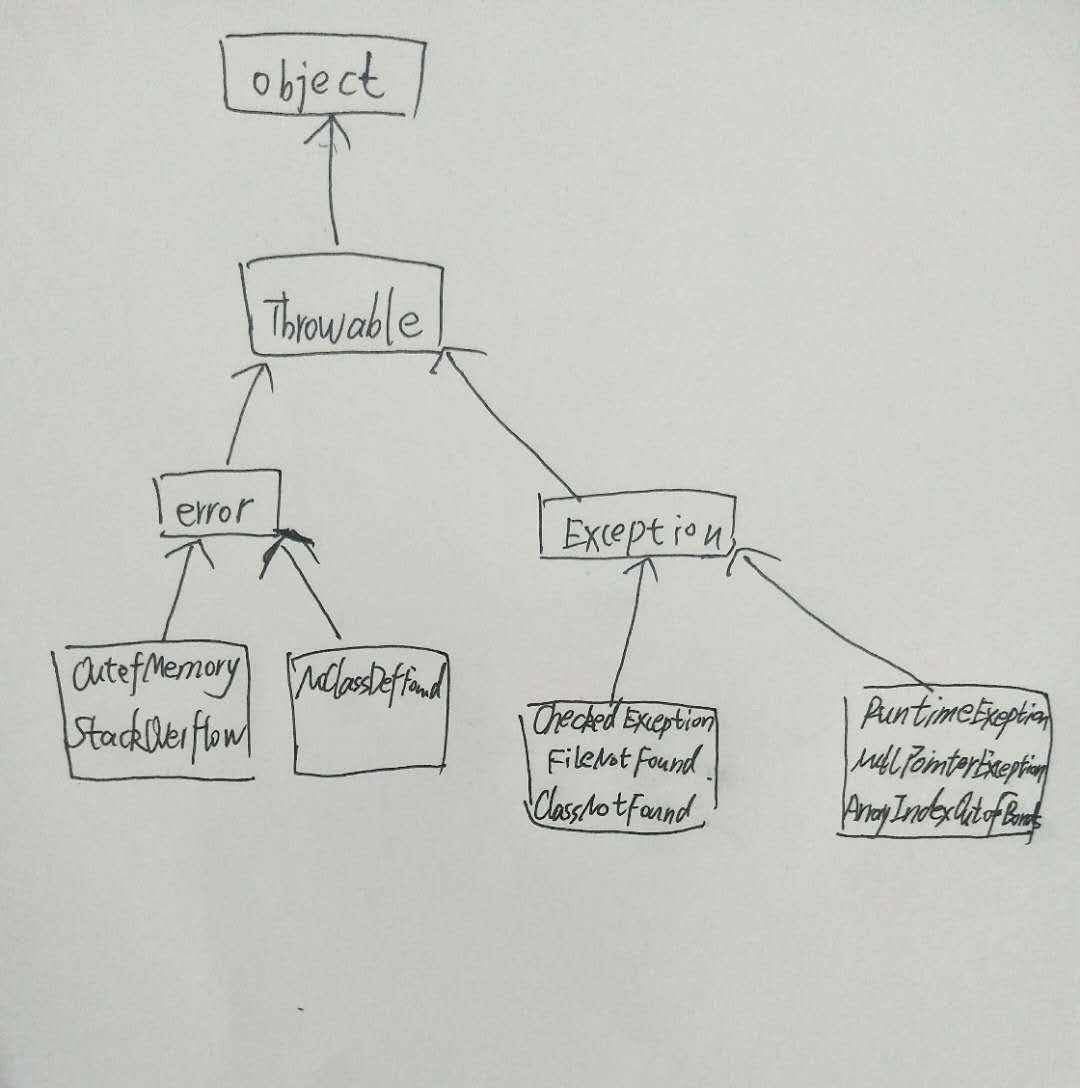 object
Throwable
error
Exception
OutofMemory
StackOverflow
NoClassDefFound
Checked Exception
FileNotFound
ClassNotFound
RuntimeException
NullPointerException
ArrayIndexOutofBonds